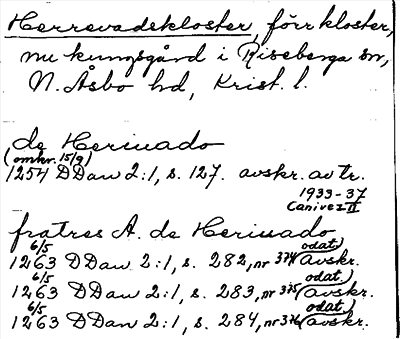 Herrevadskloster, förr kloster,
nu kungsgård i Riseberga sn,
N. Åsbo hd, Krist. l.
de Heriuado
(omkr. 15/9)
1254 DDan 2:1, s. 127. avskr. av tr.
1933-37
Canivez II
fratres A. de Heriuado
6/5 odat.
1263 DDan 2:1, s. 282, nr 374 (avskr.
6/5 odat.
1263 DDan 2:1, s. 283, nr 375 (avskr.
6/5 odat.
1263 DDan 2:1, s. 284, nr 376 (avskr.